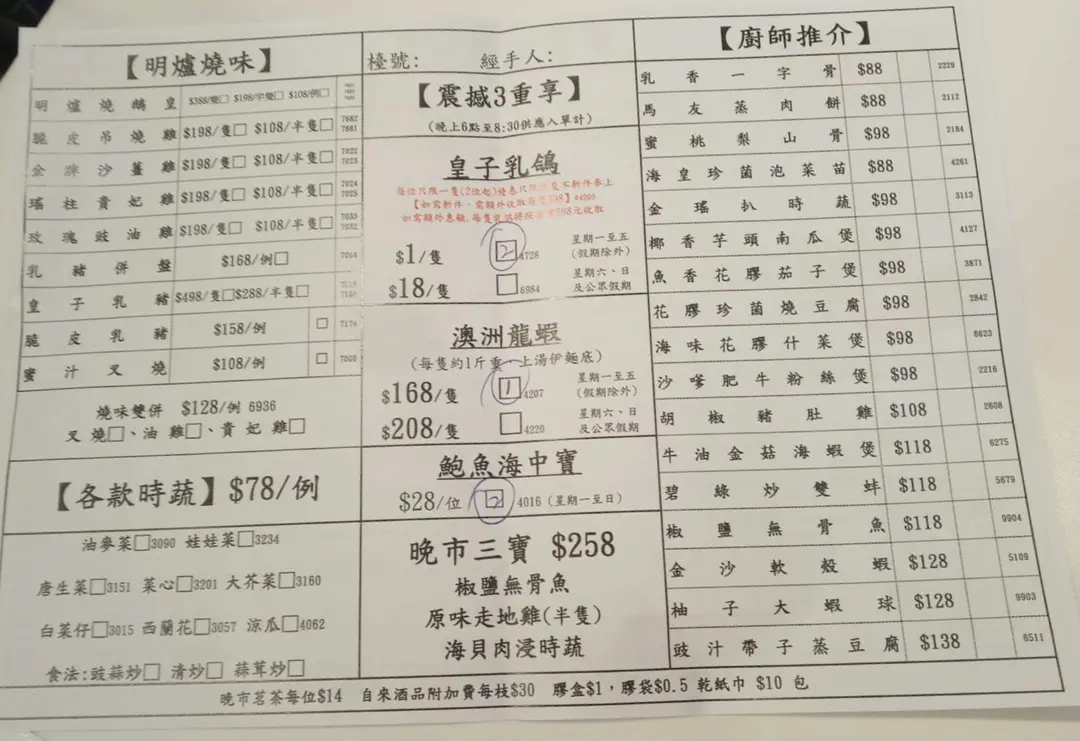 【明爐燒味】
明爐燒鵝皇 $388/隻□ $198/半隻□ $108/例□
脆皮吊燒雞 $198/隻□ $108/半隻□ 7682 7681
金牌沙薑雞 $198/隻□ $108/半隻□ 7022 7023
瑤柱貴妃雞 $198/隻□ $108/半隻□ 7024 7025
玫瑰豉油雞 $198/隻□ $108/半隻□
乳豬併盤 $168/例□
皇子乳豬 $498/隻□ $288/半隻□
脆皮乳豬 $158/例 □
蜜汁叉燒 $108/例 □
燒味雙併 $128/例 6936
叉燒□、油雞□、貴妃雞□
【各款時蔬】$78/例
油麥菜□3090 娃娃菜□3234
唐生菜□3151 菜心□3201 大芥菜□3160
白菜仔□3015 西蘭花□3057 涼瓜□4062
食法:豉蒜炒□ 清炒□ 蒜茸炒□
檯號: 經手人:
【震撼3重享】
(晚上6點至8:30供應入單計)
皇子乳鴿
$1/隻 2 4728 星期一至五
(假期除外)
$18/隻 □6984 星期六、日
及公眾假期
澳洲龍蝦
(每隻約1斤重 上湯伊麵底)
$168/隻 1 4207 星期一至五
(假期除外)
$208/隻 □4220 星期六、日
及公眾假期
鮑魚海中寶
$28/位 2 4016 (星期一至日)
晚市三寶 $258
椒鹽無骨魚
原味走地雞(半隻)
海貝肉浸時蔬
【廚師推介】
乳香一字骨 $88 2229
馬友蒸肉餅 $88 2112
蜜桃梨山骨 $98 2184
海皇珍菌泡菜苗 $88 4261
金瑤扒時蔬 $98 3113
椰香芋頭南瓜煲 $98 4127
魚香花膠茄子煲 $98 3871
花膠珍菌燒豆腐 $98 2842
海味花膠什菜煲 $98 6623
沙嗲肥牛粉絲煲 $98 2216
胡椒豬肚雞 $108 2608
牛油金菇海蝦煲 $118 6275
碧綠炒雙蚌 $118 5679
椒鹽無骨魚 $118 9904
金沙軟殼蝦 $128 5109
柚子大蝦球 $128 9903
豉汁帶子蒸豆腐 $138 6511
晚市茗茶每位$14 自來酒品附加費每枝$30 膠盒$1，膠袋$0.5 乾紙巾 $10 包